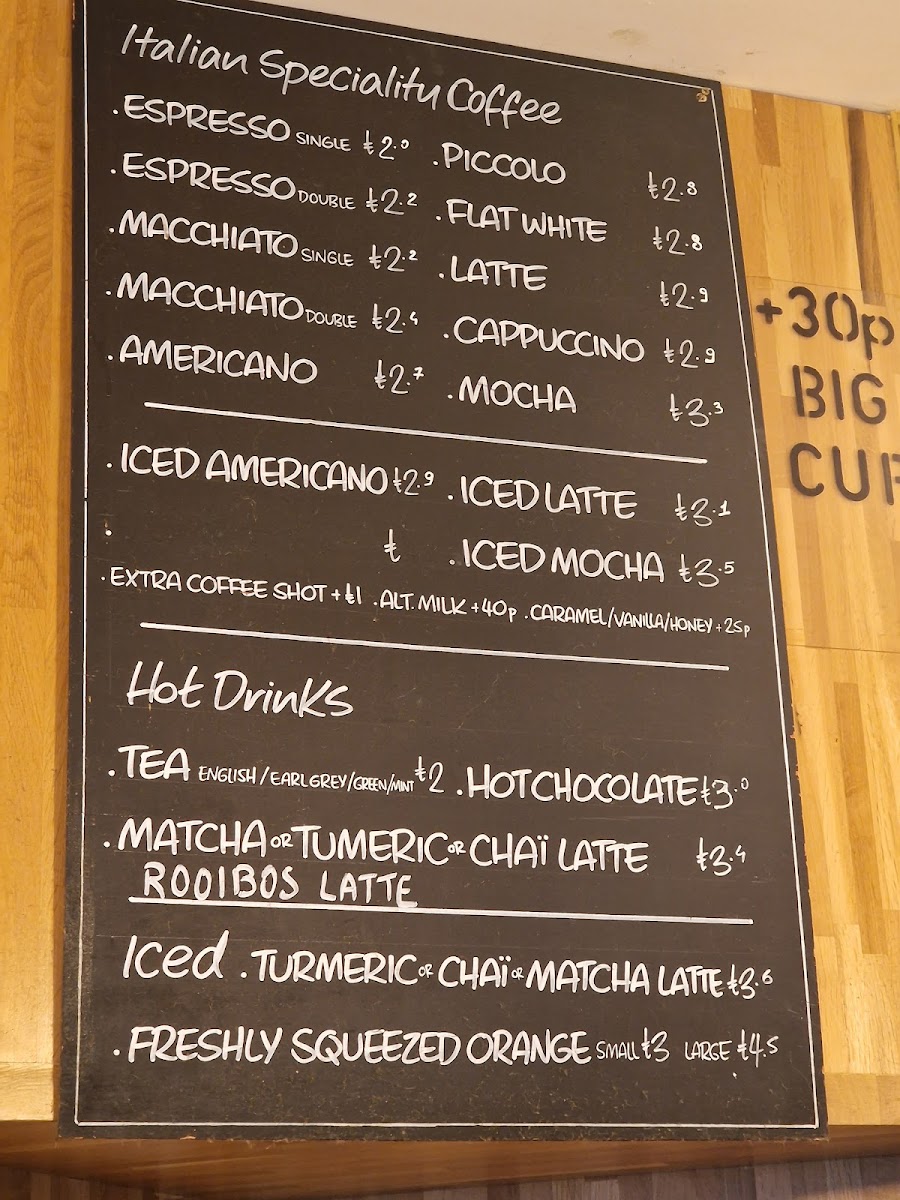 Italian Speciality Coffee
. ESPRESSO SINGLE £2.0 . PICCOLO £2.8
. ESPRESSO DOUBLE £2.2 . FLAT WHITE £2.8
. MACCHIATO SINGLE £2.2 . LATTE £2.9
. MACCHIATO DOUBLE £2.4 . CAPPUCCINO £2.9
. AMERICANO £2.7 . MOCHA £3.3
+30p
BIG
CUP
. ICED AMERICANO £2.9 . ICED LATTE £3.1
. £ . ICED MOCHA £3.5
. EXTRA COFFEE SHOT + £1 . ALT. MILK + 40p . CARAMEL/VANILLA/HONEY + 25p
Hot Drinks
. TEA ENGLISH / EARL GREY / GREEN/MINT £2 . HOT CHOCOLATE £3.0
. MATCHA OR TUMERIC OR CHAÏ LATTE £3.4
ROOIBOS LATTE
Iced . TURMERIC OR CHAÏ OR MATCHA LATTE £3.6
. FRESHLY SQUEEZED ORANGE SMALL £3 LARGE £4.5